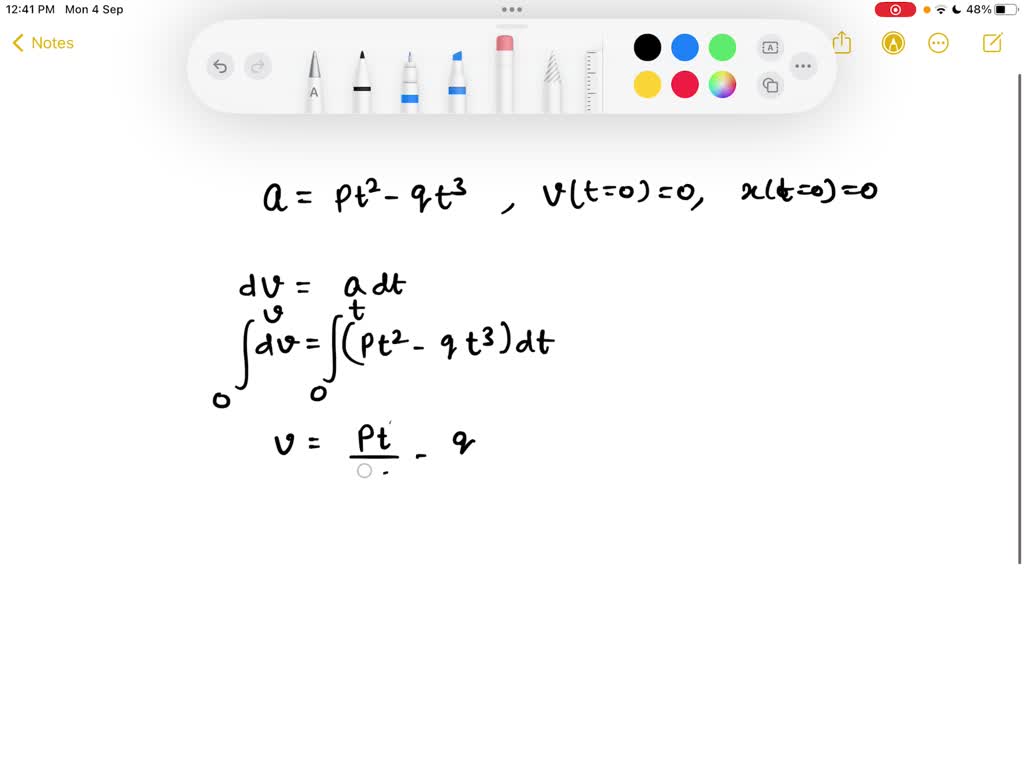 12:41 PM Mon 4 Sep 48%
Notes
A A
a = pt² - qt³ , v(t=0)=0, x(t=0)=0
dv = a dt
∫₀ᵛ dv = ∫₀ᵗ (pt² - qt³)dt
v = pt/ - q